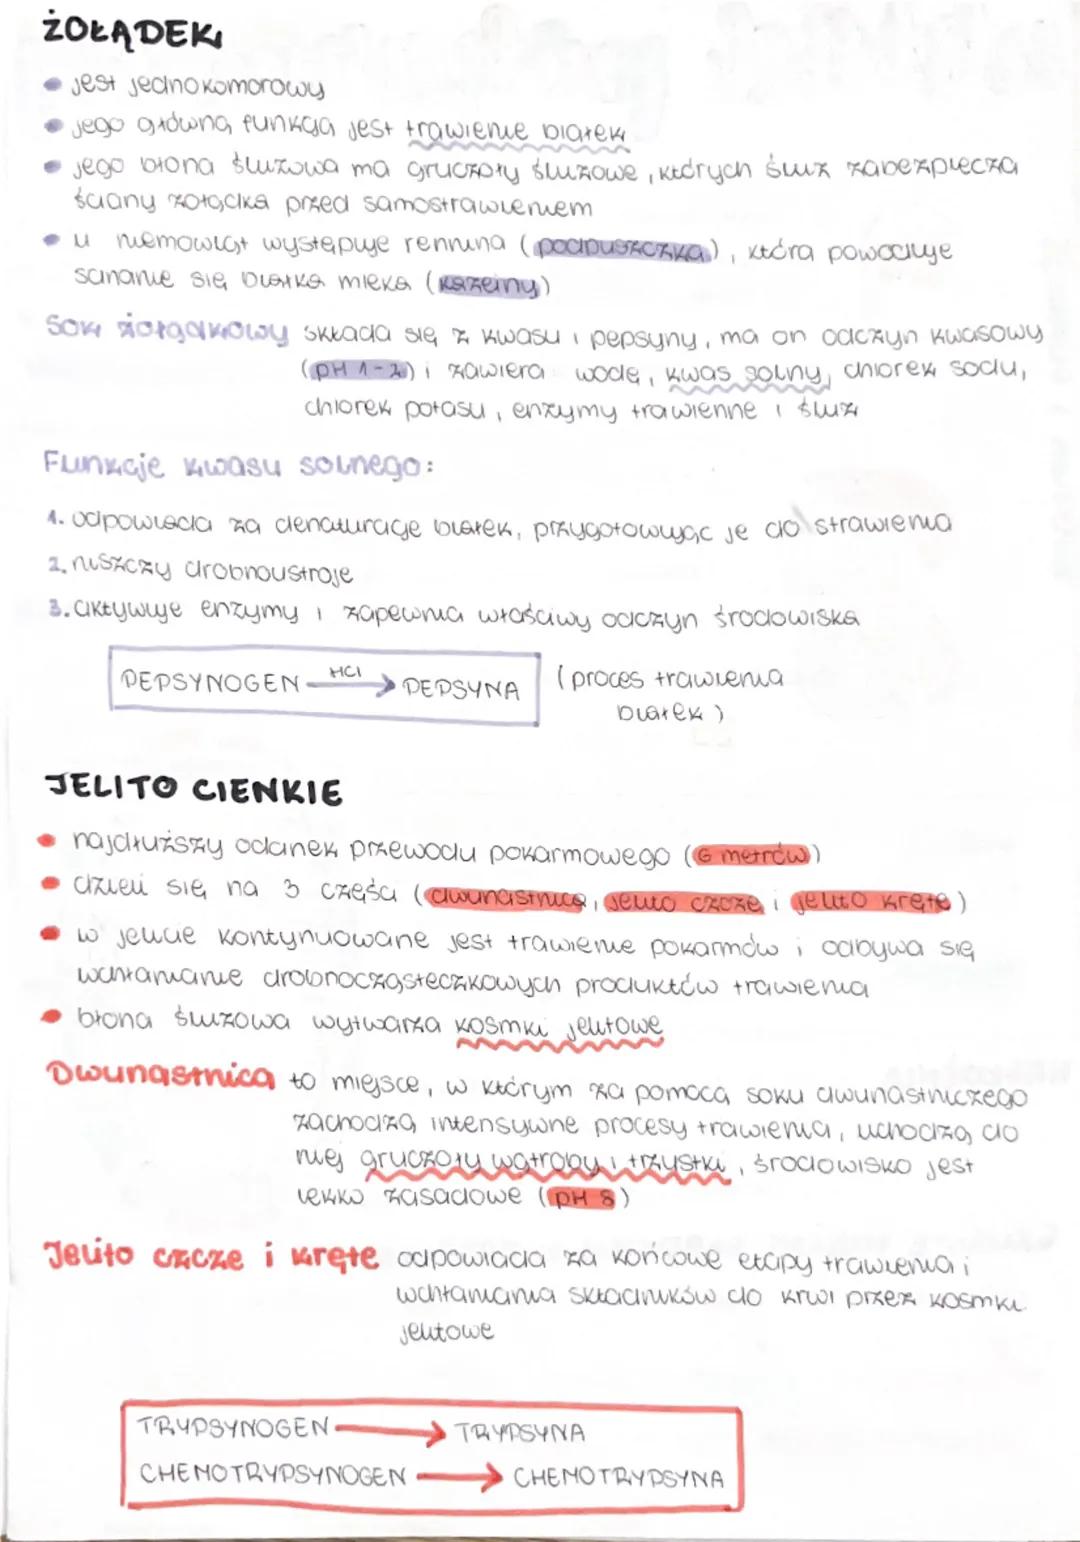 ŻOŁĄDEK
jest jednokomorowy
jego główną funkcją jest trawienie białek
jego błona śluzowa ma gruczoły śluzowe, których śluz zabezpiecza
ściany żołądka przed samostrawieniem
u niemowląt występuje rennina (podpuszczka), która powoduje
ścinanie się białka mleka (kazeiny)
Sok żołądkowy składa się z kwasu i pepsyny, ma on odczyn kwasowy
(pH 1-2) i zawiera wodę, kwas solny, chlorek sodu,
chlorek potasu, enzymy trawienne i śluz
Funkcje kwasu solnego:
1. odpowiada za denaturację białek, przygotowując je do strawienia
2. niszczy drobnoustroje
3. aktywuje enzymy i zapewnia właściwy odczyn środowiska
PEPSYNOGEN HCl → PEPSYNA (proces trawienia
białek)
JELITO CIENKIE
najdłuższy odcinek przewodu pokarmowego (6 metrów)
dzieli się na 3 części (dwunastnicę, jelito czcze i jelito kręte)
w jelicie kontynuowane jest trawienie pokarmów i odbywa się
wchłanianie drobnocząsteczkowych produktów trawienia
błona śluzowa wytwarza kosmki jelitowe
Dwunastnica to miejsce, w którym za pomocą soku dwunastniczego
zachodzą intensywne procesy trawienia, uchodzą do
niej gruczoły wątroby i trzustki, środowisko jest
lekko zasadowe (pH 8)
Jelito czcze i kręte odpowiada za końcowe etapy trawienia i
wchłaniania składników do krwi przez kosmki
jelitowe
TRYPSYNOGEN → TRYPSYNA
CHEMOTRYPSYNOGEN → CHEMOTRYPSYNA